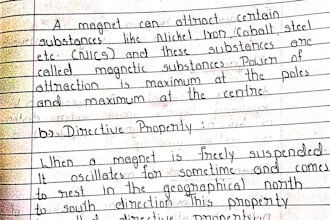 A magnet can attract certain
substances like Nickel Iron, Cobalt, steel
etc. (NICS) and these substances are
called magnetic substances Power of
attraction is maximum at the poles
and maximum at the centre
b) Directive Property :
When a magnet is freely suspended.
It oscillates for sometime and comes
to rest in the geographical north
to south direction This property
directive property